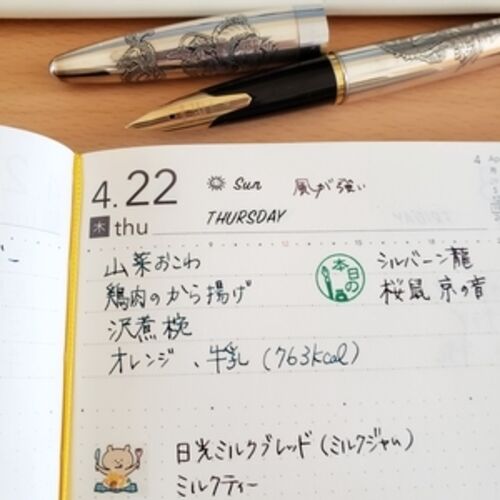 4.22
木 thu
Sun 風が強い
THURSDAY
山菜おこわ
鶏肉のから揚げ
沢煮椀
オレンジ、牛乳 (763kcal)
本日の
シルバーン龍
桜鼠 京の音
日光ミルクブレッド(ミルクジャム)
ミルクティー